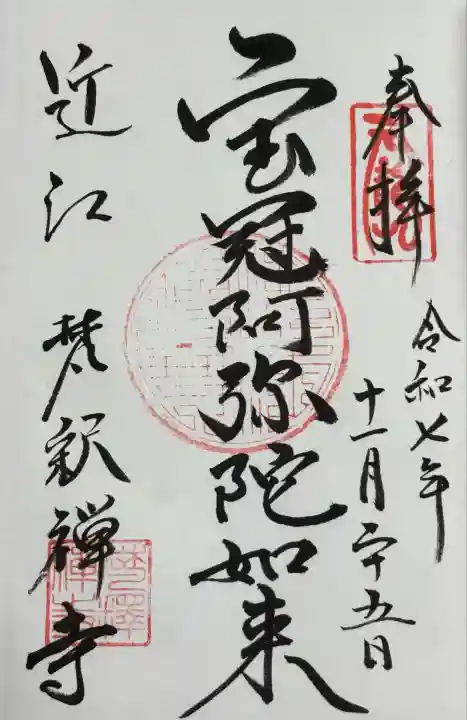 奉拝
令和七年
十一月二十五日
宝冠阿弥陀如来
近江 梵釈禅寺